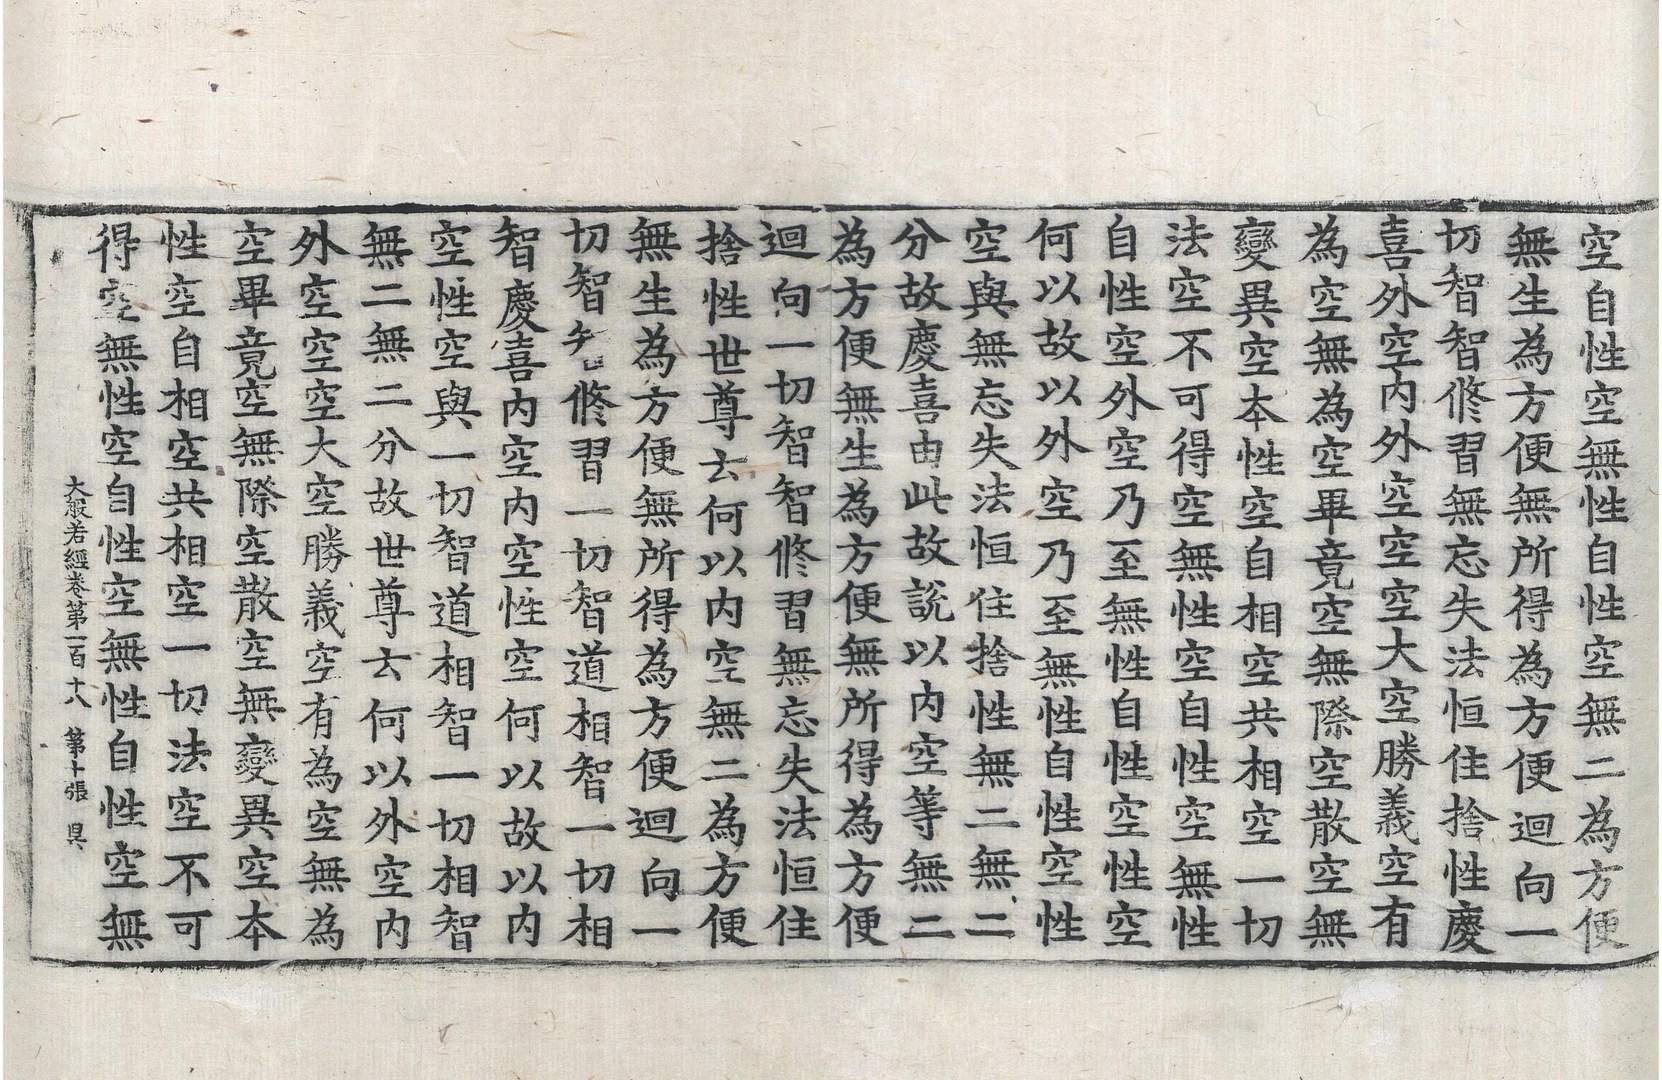 空自性空無性自性空無二為方便
無生為方便無所得為方便迴向一
切智智修習無忘失法恒住捨性慶
喜外空內外空空空大空勝義空有
為空無為空畢竟空無際空散空無
變異空本性空自相空共相空一切
法空不可得空無性空自性空無性
自性空外空乃至無性自性空性空
何以故以外空乃至無性自性空性
空與無忘失法恒住捨性無二無二
分故慶喜由此故說以內空等無二
為方便無生為方便無所得為方便
迴向一切智智修習無忘失法恒住
捨性世尊云何以內空無二為方便
無生為方便無所得為方便迴向一
切智智修習一切智道相智一切相
智慶喜內空內空性空何以故以內
空性空與一切智道相智一切相智
無二無二分故世尊云何以外空內
外空空空大空勝義空有為空無為
空畢竟空無際空散空無變異空本
性空自相空共相空一切法空不可
得空無性空自性空無性自性空無
大般若經卷第一百十八 第十張 昃